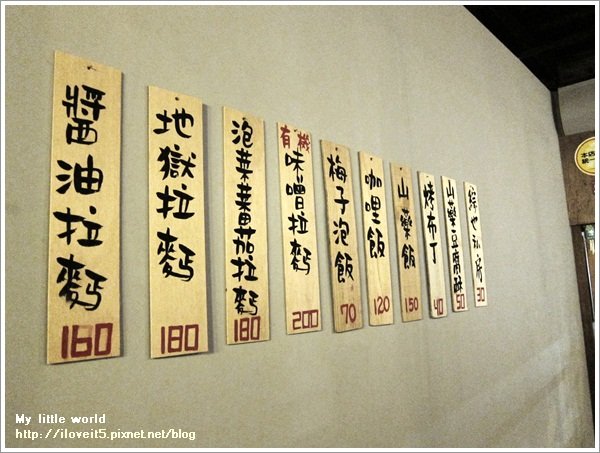 醬油拉麵
160
地獄拉麵
180
泡菜蕃茄拉麵
180
有機
味噌拉麵
200
梅子泡飯
70
咖哩飯
120
山藥飯
150
烤布丁
40
山藥豆腐酥
50
30
本店
My little world
http://iloveit5.pixnet.net/blog